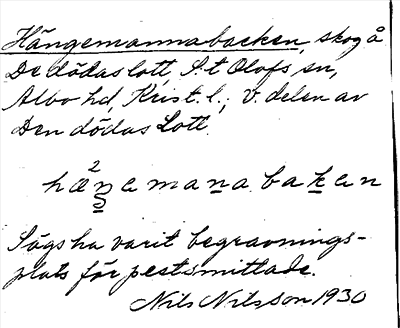 Hängemannabacken, skog å
De dödas lott, S:t Olofs sn,
Albo hd, Krist. l.; V. delen av
Den dödas Lott.
hä²ŋemana baken
Sägs ha varit begravnings-
plats för pestsmittade.
Nils Nilsson 1930